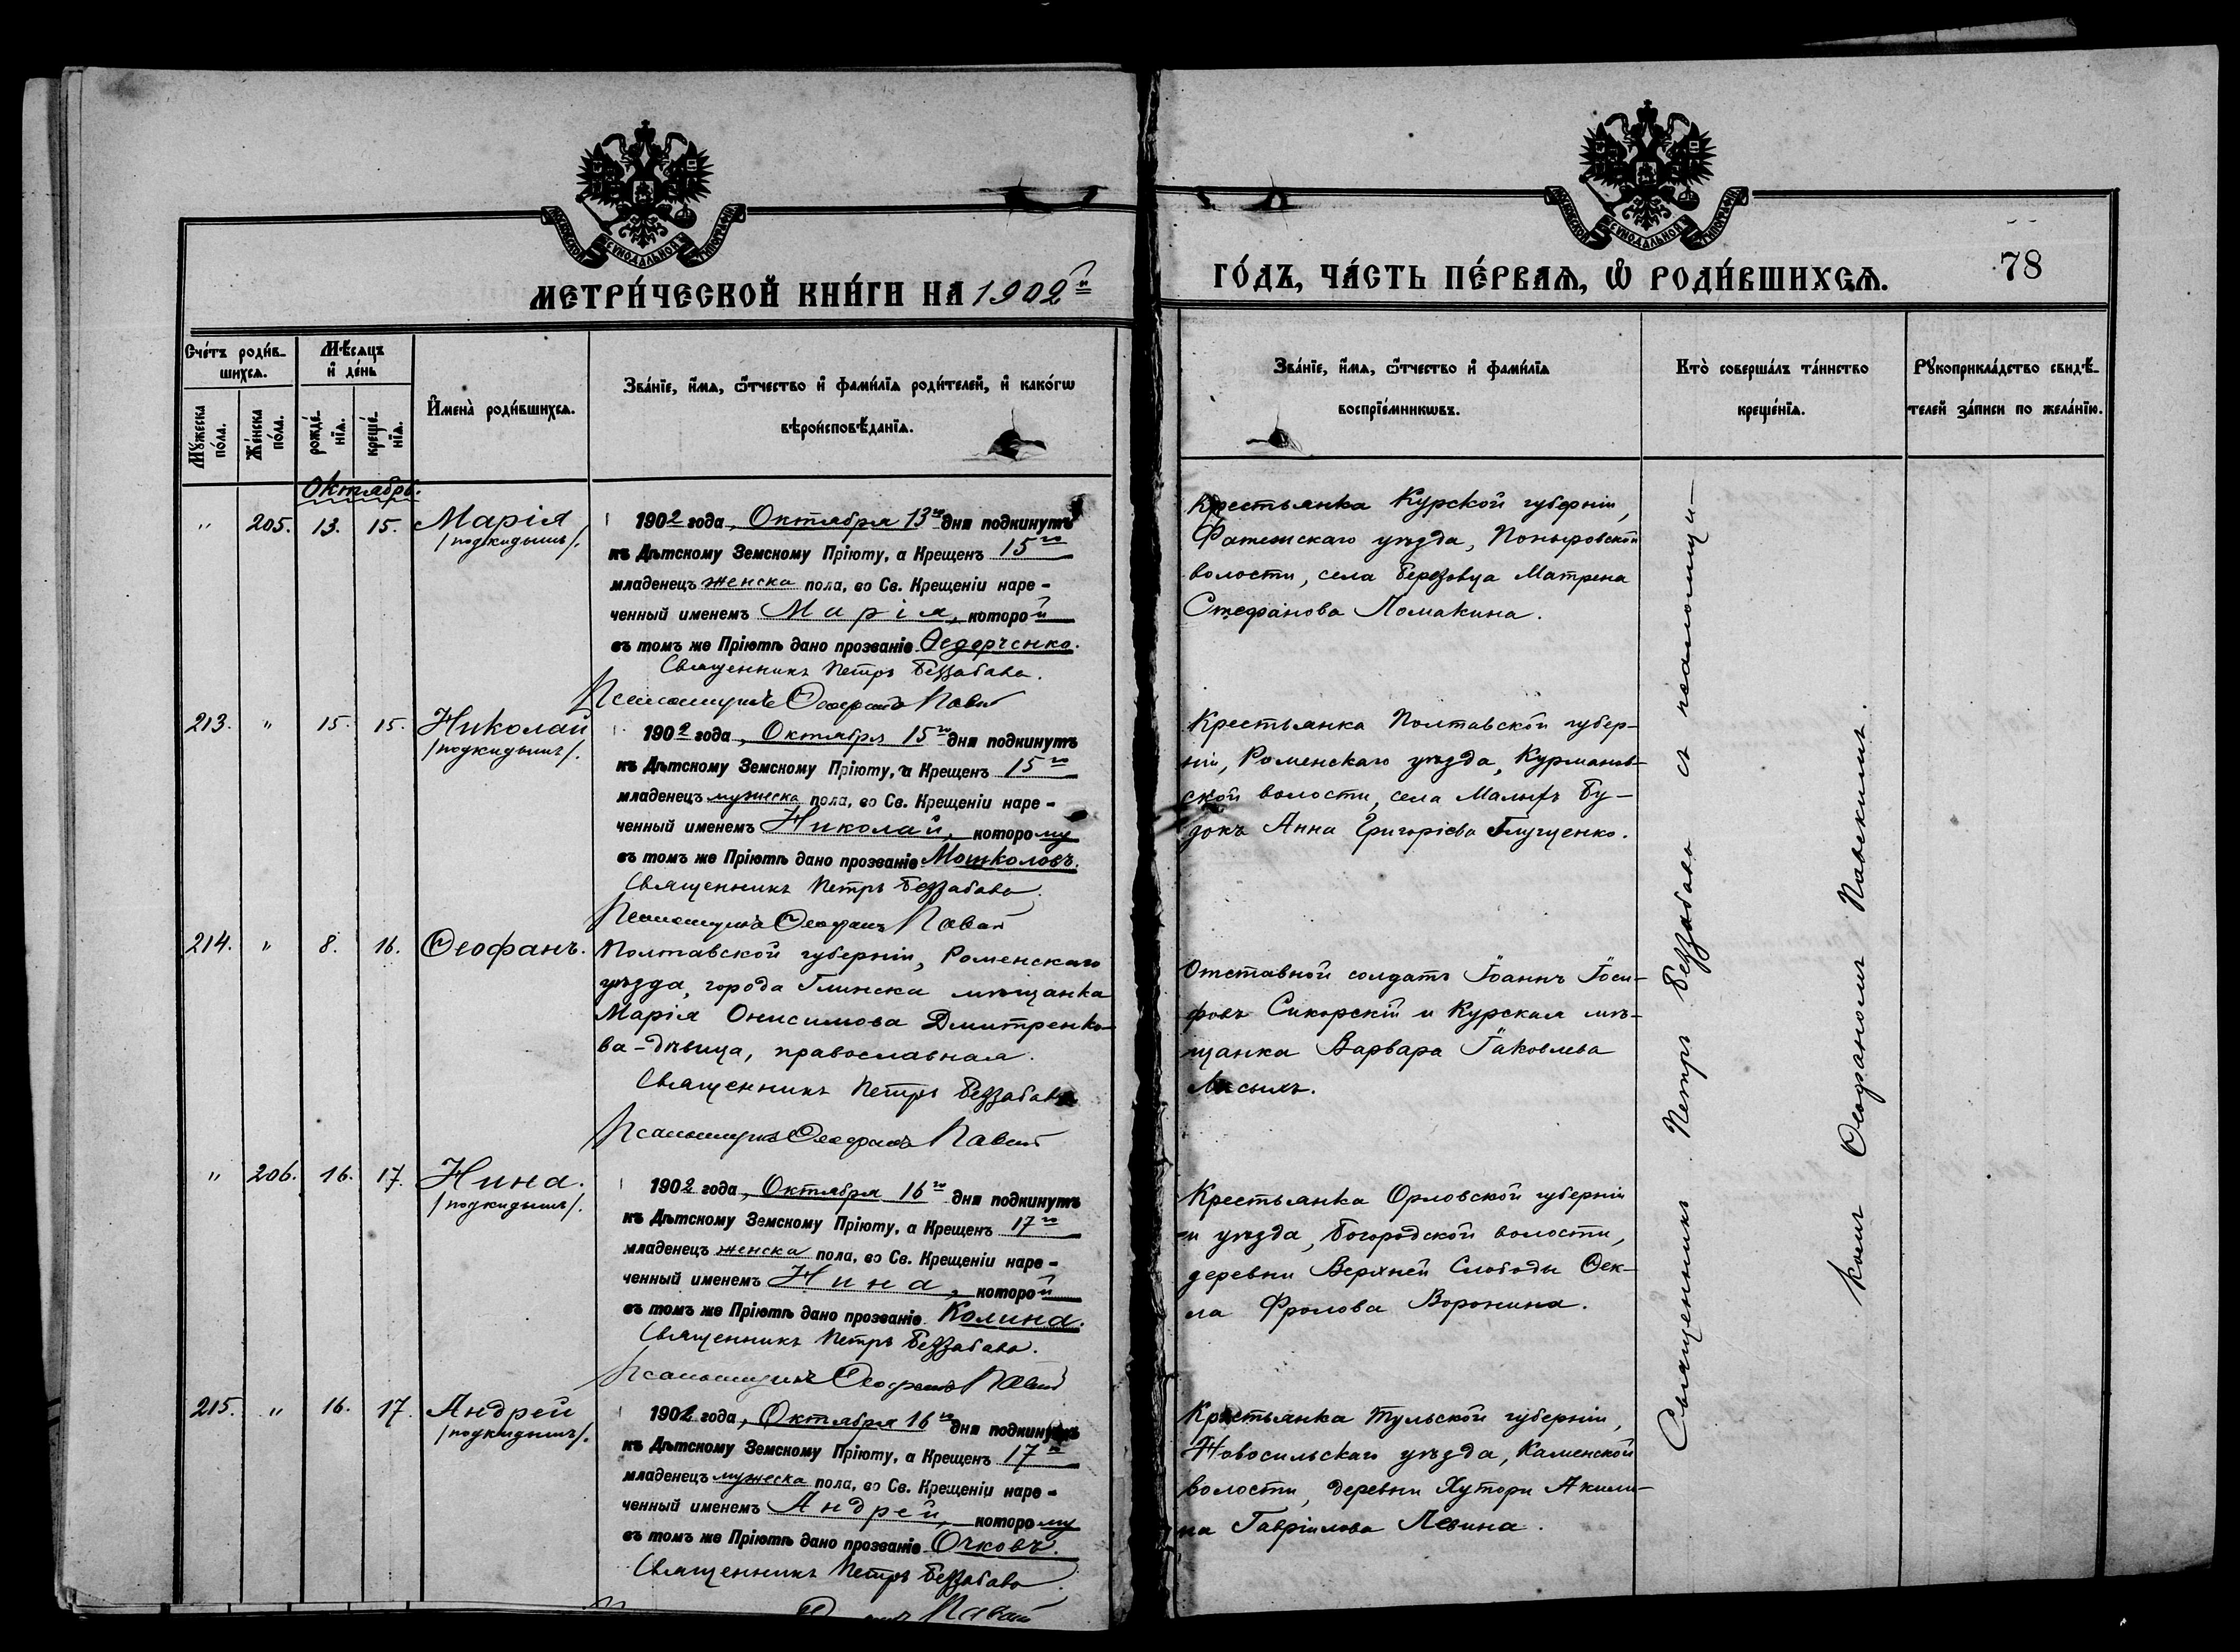 МЕТРИ́ЧЕСКОЙ КНИ́ГИ НА 1902й
ГО́ДЪ, ЧА́СТЬ ПЕ́РВАѦ, Ѡ҆ РОДИ́ВШИХСѦ.
78
Сче́тъ роди́в-
шихсѧ.
Мꙋ́жеска
по́ла.
Же́нска
по́ла.
Мѣ́сѧцъ
и҆ де́нь
рожде́-
нїѧ.
креще́-
нїѧ.
И҆мена̀ роди́вшихсѧ.
Зва́нїе, и҆́мѧ, ѻ҆́тчество и҆ фами́лїѧ роди́телей, и҆ како́гѡ
вѣроисповѣ́данїѧ.
Зва́нїе, и҆́мѧ, ѻ҆́тчество и҆ фами́лїѧ
воспрїе́мникѡвъ.
Кто̀ соверша́лъ та́инство
креще́нїѧ.
Рꙋкоприкла́дство свидѣ́-
телей за́писи по жела́нїю.
Октябрь.
" 205. 13. 15. Марія
/подкидышъ/.
1902 года, Октября 13го дня подкинутъ
къ Дѣтскому Земскому Пріюту, а Крещенъ 15го
младенецъ женска пола, во Св. Крещеніи наре-
ченный именемъ Марія, которой
въ томъ же Пріютѣ дано прозваніе Ѳедорченко.
Священникъ Петръ Беззабава.
Псаломщикъ Ѳеофанъ
Крестьянка Курской губерніи,
Фатежскаго уѣзда, Поныровской
волости, села Березовца Матрена
Стефанова Ломакина.
213. " 15. 15. Николай
/подкидышъ/.
1902 года, Октября 15го дня подкинутъ
къ Дѣтскому Земскому Пріюту, а Крещенъ 15го
младенецъ мужеска пола, во Св. Крещеніи наре-
ченный именемъ Николай, которому
въ томъ же Пріютѣ дано прозваніе Мошколовъ.
Священникъ Петръ Беззабава.
Псаломщикъ Ѳеофанъ
Крестьянка Полтавской губер-
ніи, Роменскаго уѣзда, Курманов-
ской волости, села Малыхъ Бу-
докъ Анна Григоріева Глущенко.
214. " 8. 16. Ѳеофанъ.
Полтавской губерніи, Роменскаго
уѣзда, города Глинска мѣщанка
Марія Онисимова Дмитренко-
ва-дѣвица, православная.
Священникъ Петръ Беззабава
Псаломщикъ Ѳеофанъ
Отставной солдатъ Іоаннъ Іоси-
фовъ Сикорскій и Курская мѣ-
щанка Варвара Іаковлева
Лысыхъ.
" 206. 16. 17. Нина.
/подкидышъ/.
1902 года, Октября 16го дня подкинутъ
къ Дѣтскому Земскому Пріюту, а Крещенъ 17го
младенецъ женска пола, во Св. Крещеніи наре-
ченный именемъ Нина, которой
въ томъ же Пріютѣ дано прозваніе Колина.
Священникъ Петръ Беззабава.
Псаломщикъ Ѳеофанъ
Крестьянка Орловской губерніи
и уѣзда, Богородской волости,
деревни Верхней Слободы Ѳек-
ла Фролова Воронина.
215. " 16. 17. Андрей
/подкидышъ/.
1902 года, Октября 16го дня подкинутъ
къ Дѣтскому Земскому Пріюту, а Крещенъ 17го
младенецъ мужеска пола, во Св. Крещеніи наре-
ченный именемъ Андрей, которому
въ томъ же Пріютѣ дано прозваніе Очковъ.
Священникъ Петръ Беззабава.
Крестьянка Тульской губерніи,
Новосильскаго уѣзда, Каменской
волости, деревни Хутори Акили-
на Гавріилова Левина.
Священникъ Петръ Беззабава съ псаломщи-
комъ Ѳеофаномъ Павскимъ.